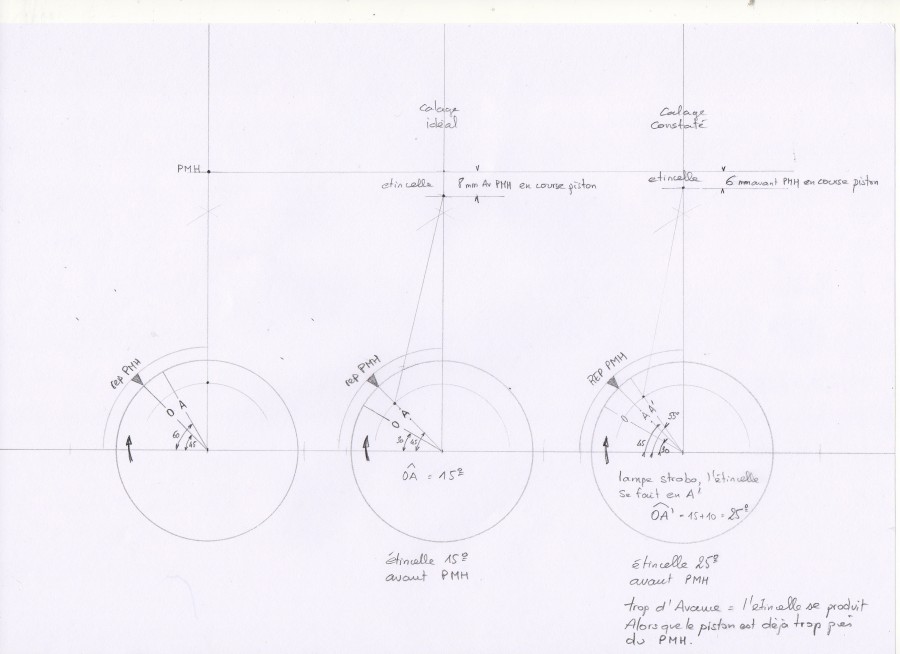 Calage
idéal
Calage
Constaté
PMH
etincelle
8 mm Av PMH en course piston
etincelle
6 mm avant PMH en course piston
rep PMH
O
A
60
45
rep PMH
A
O
30
45
OA = 15°
REP PMH
O
A
A'
55°
45
30
lampe strobo, l'étincelle
se fait en A'
OA' = 15+10 = 25°
étincelle 15°
avant PMH
étincelle 25°
avant PMH
trop d'Avance = l'etincelle se produit
Alors que le piston est déjà trop près
du PMH.